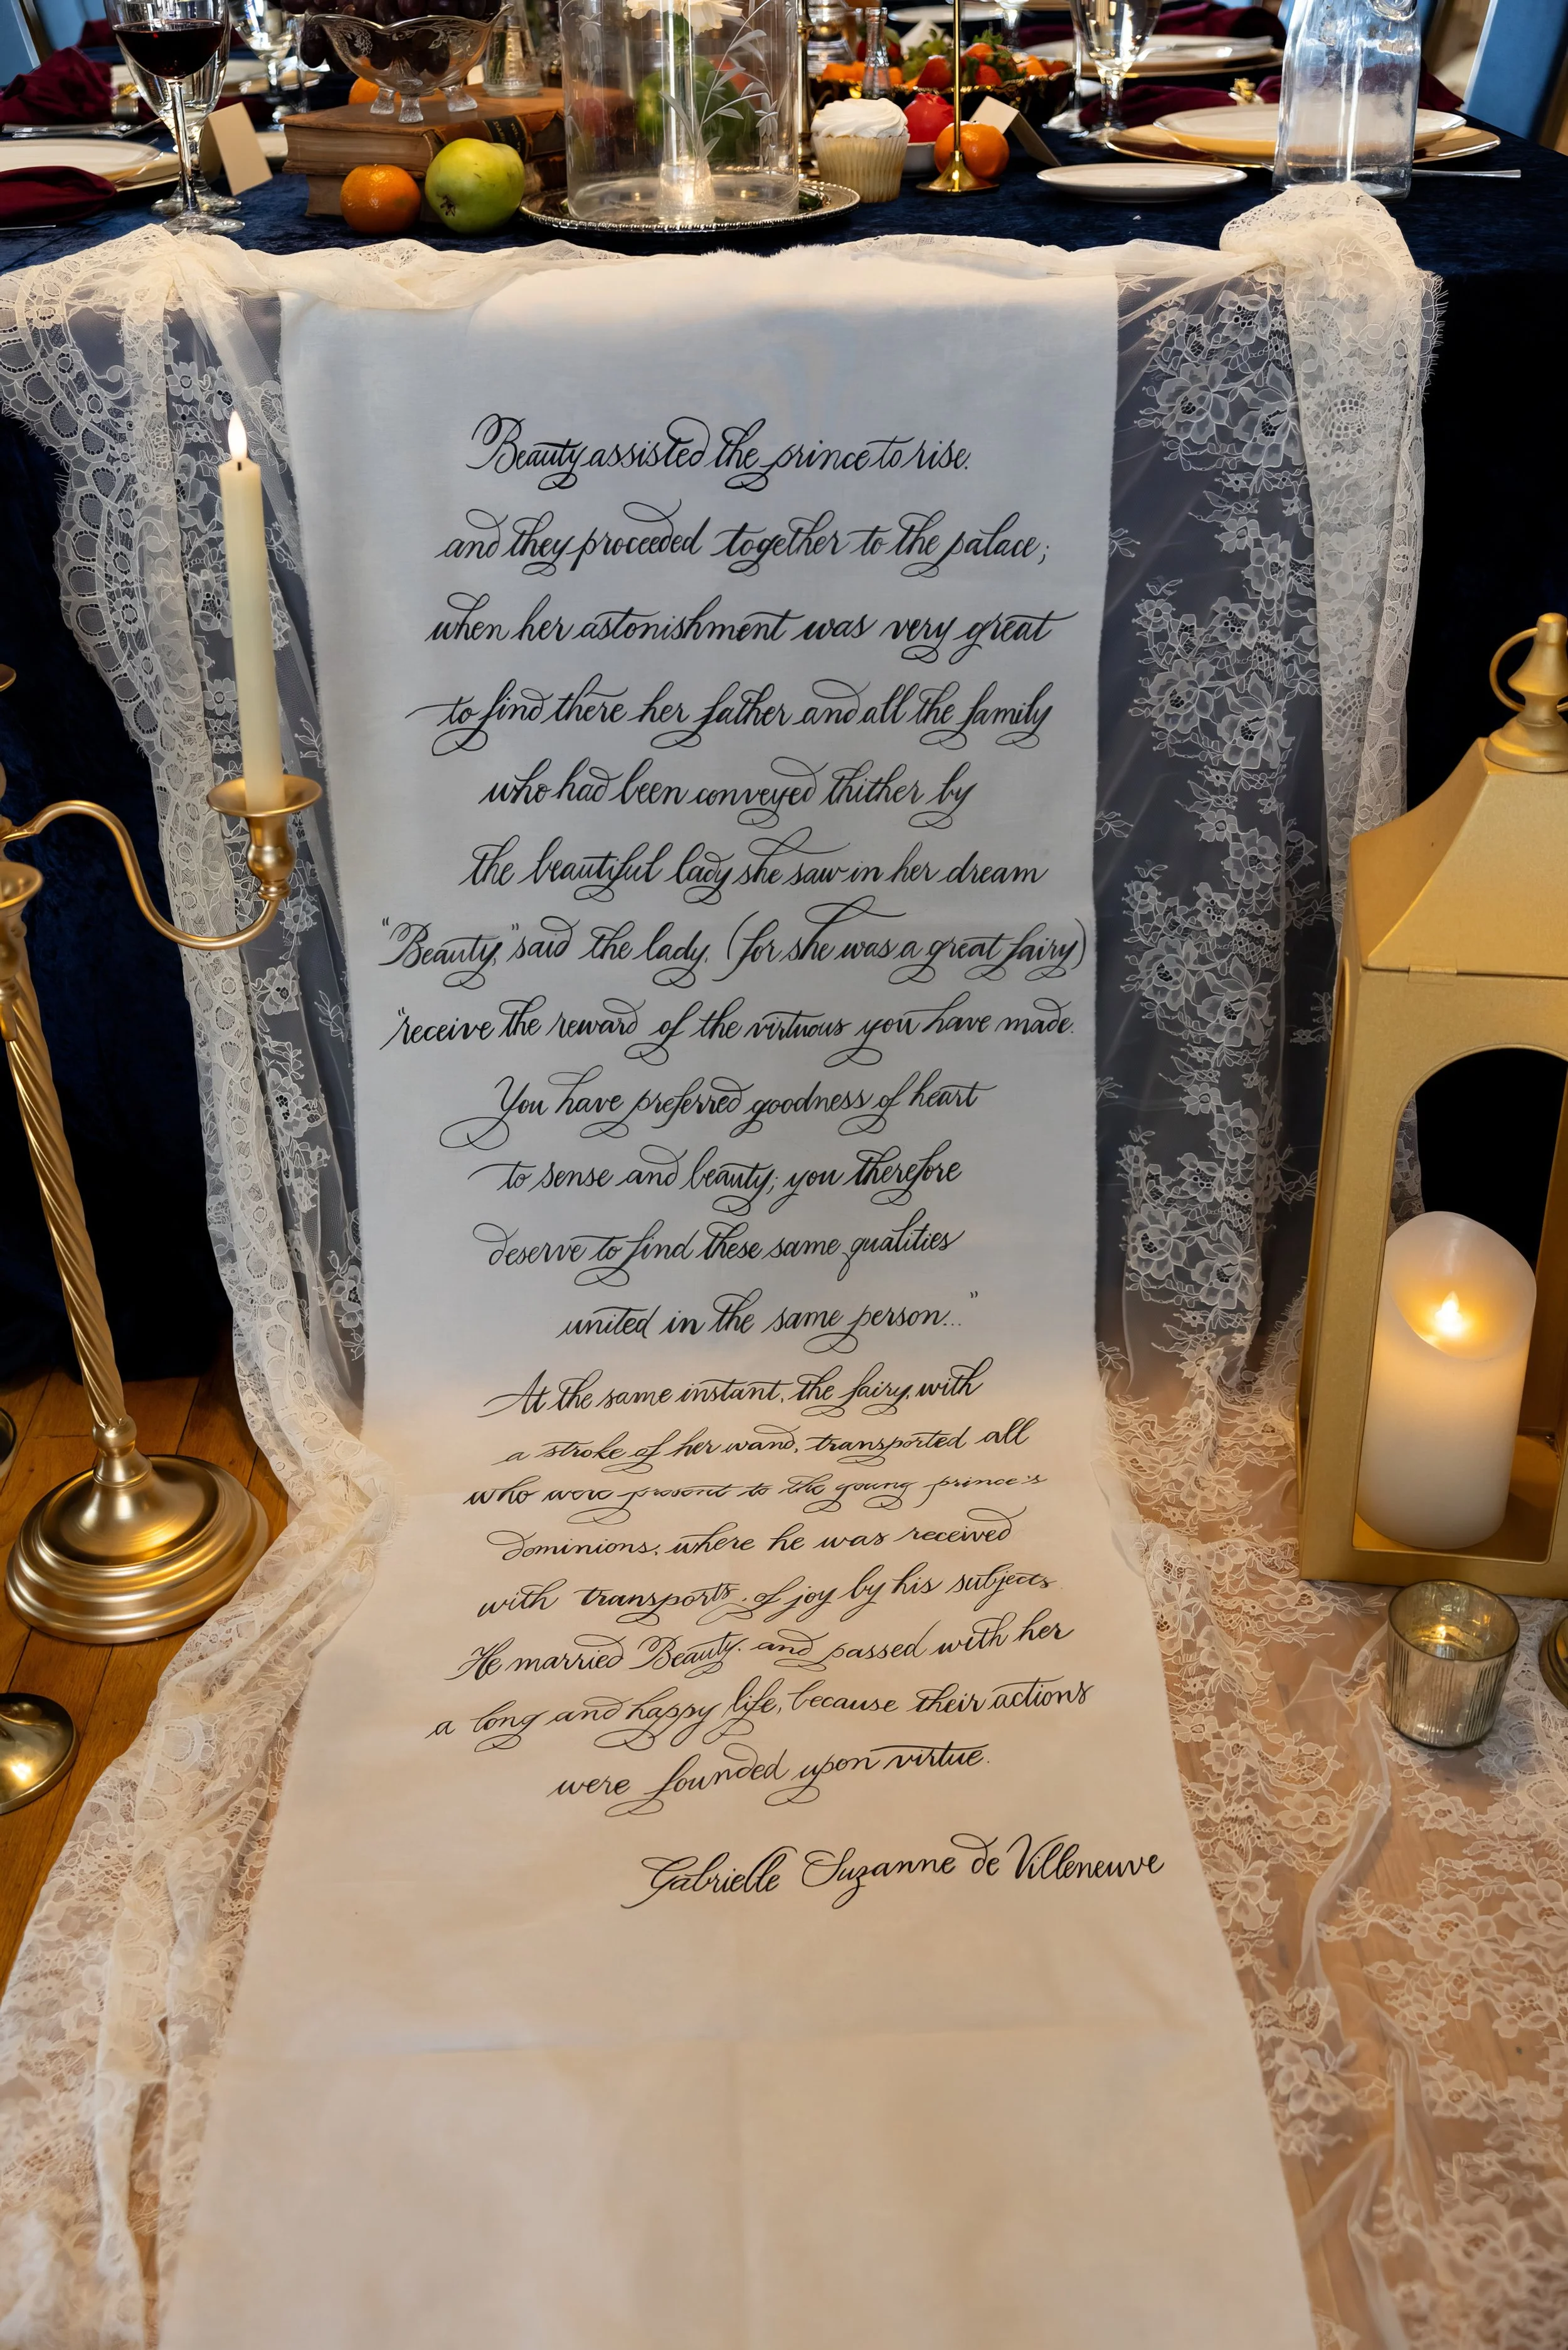 Beauty assisted the prince to rise.
and they proceeded together to the palace;
when her astonishment was very great
to find there her father and all the family
who had been conveyed thither by
the beautiful lady she saw in her dream
"Beauty," said the lady, (for she was a great fairy)
"receive the reward of the virtuous you have made.
You have preferred goodness of heart
to sense and beauty; you therefore
deserve to find these same qualities
united in the same person..."
At the same instant, the fairy, with
a stroke of her wand, transported all
who were present to the young prince's
dominions, where he was received
with transports of joy by his subjects
He married Beauty, and passed with her
a long and happy life, because their actions
were founded upon virtue.
Gabrielle Suzanne de Villeneuve